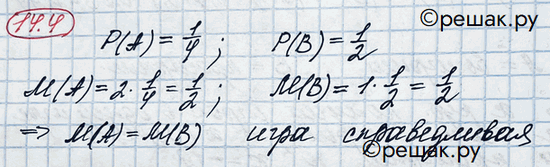 14.4
©решак.ру
P(A)=1/4; P(B)=1/2
M(A)=2·1/4=1/2; M(B)=1·1/2=1/2
⇒ M(A)=M(B) игра справедливая
©решак.ру